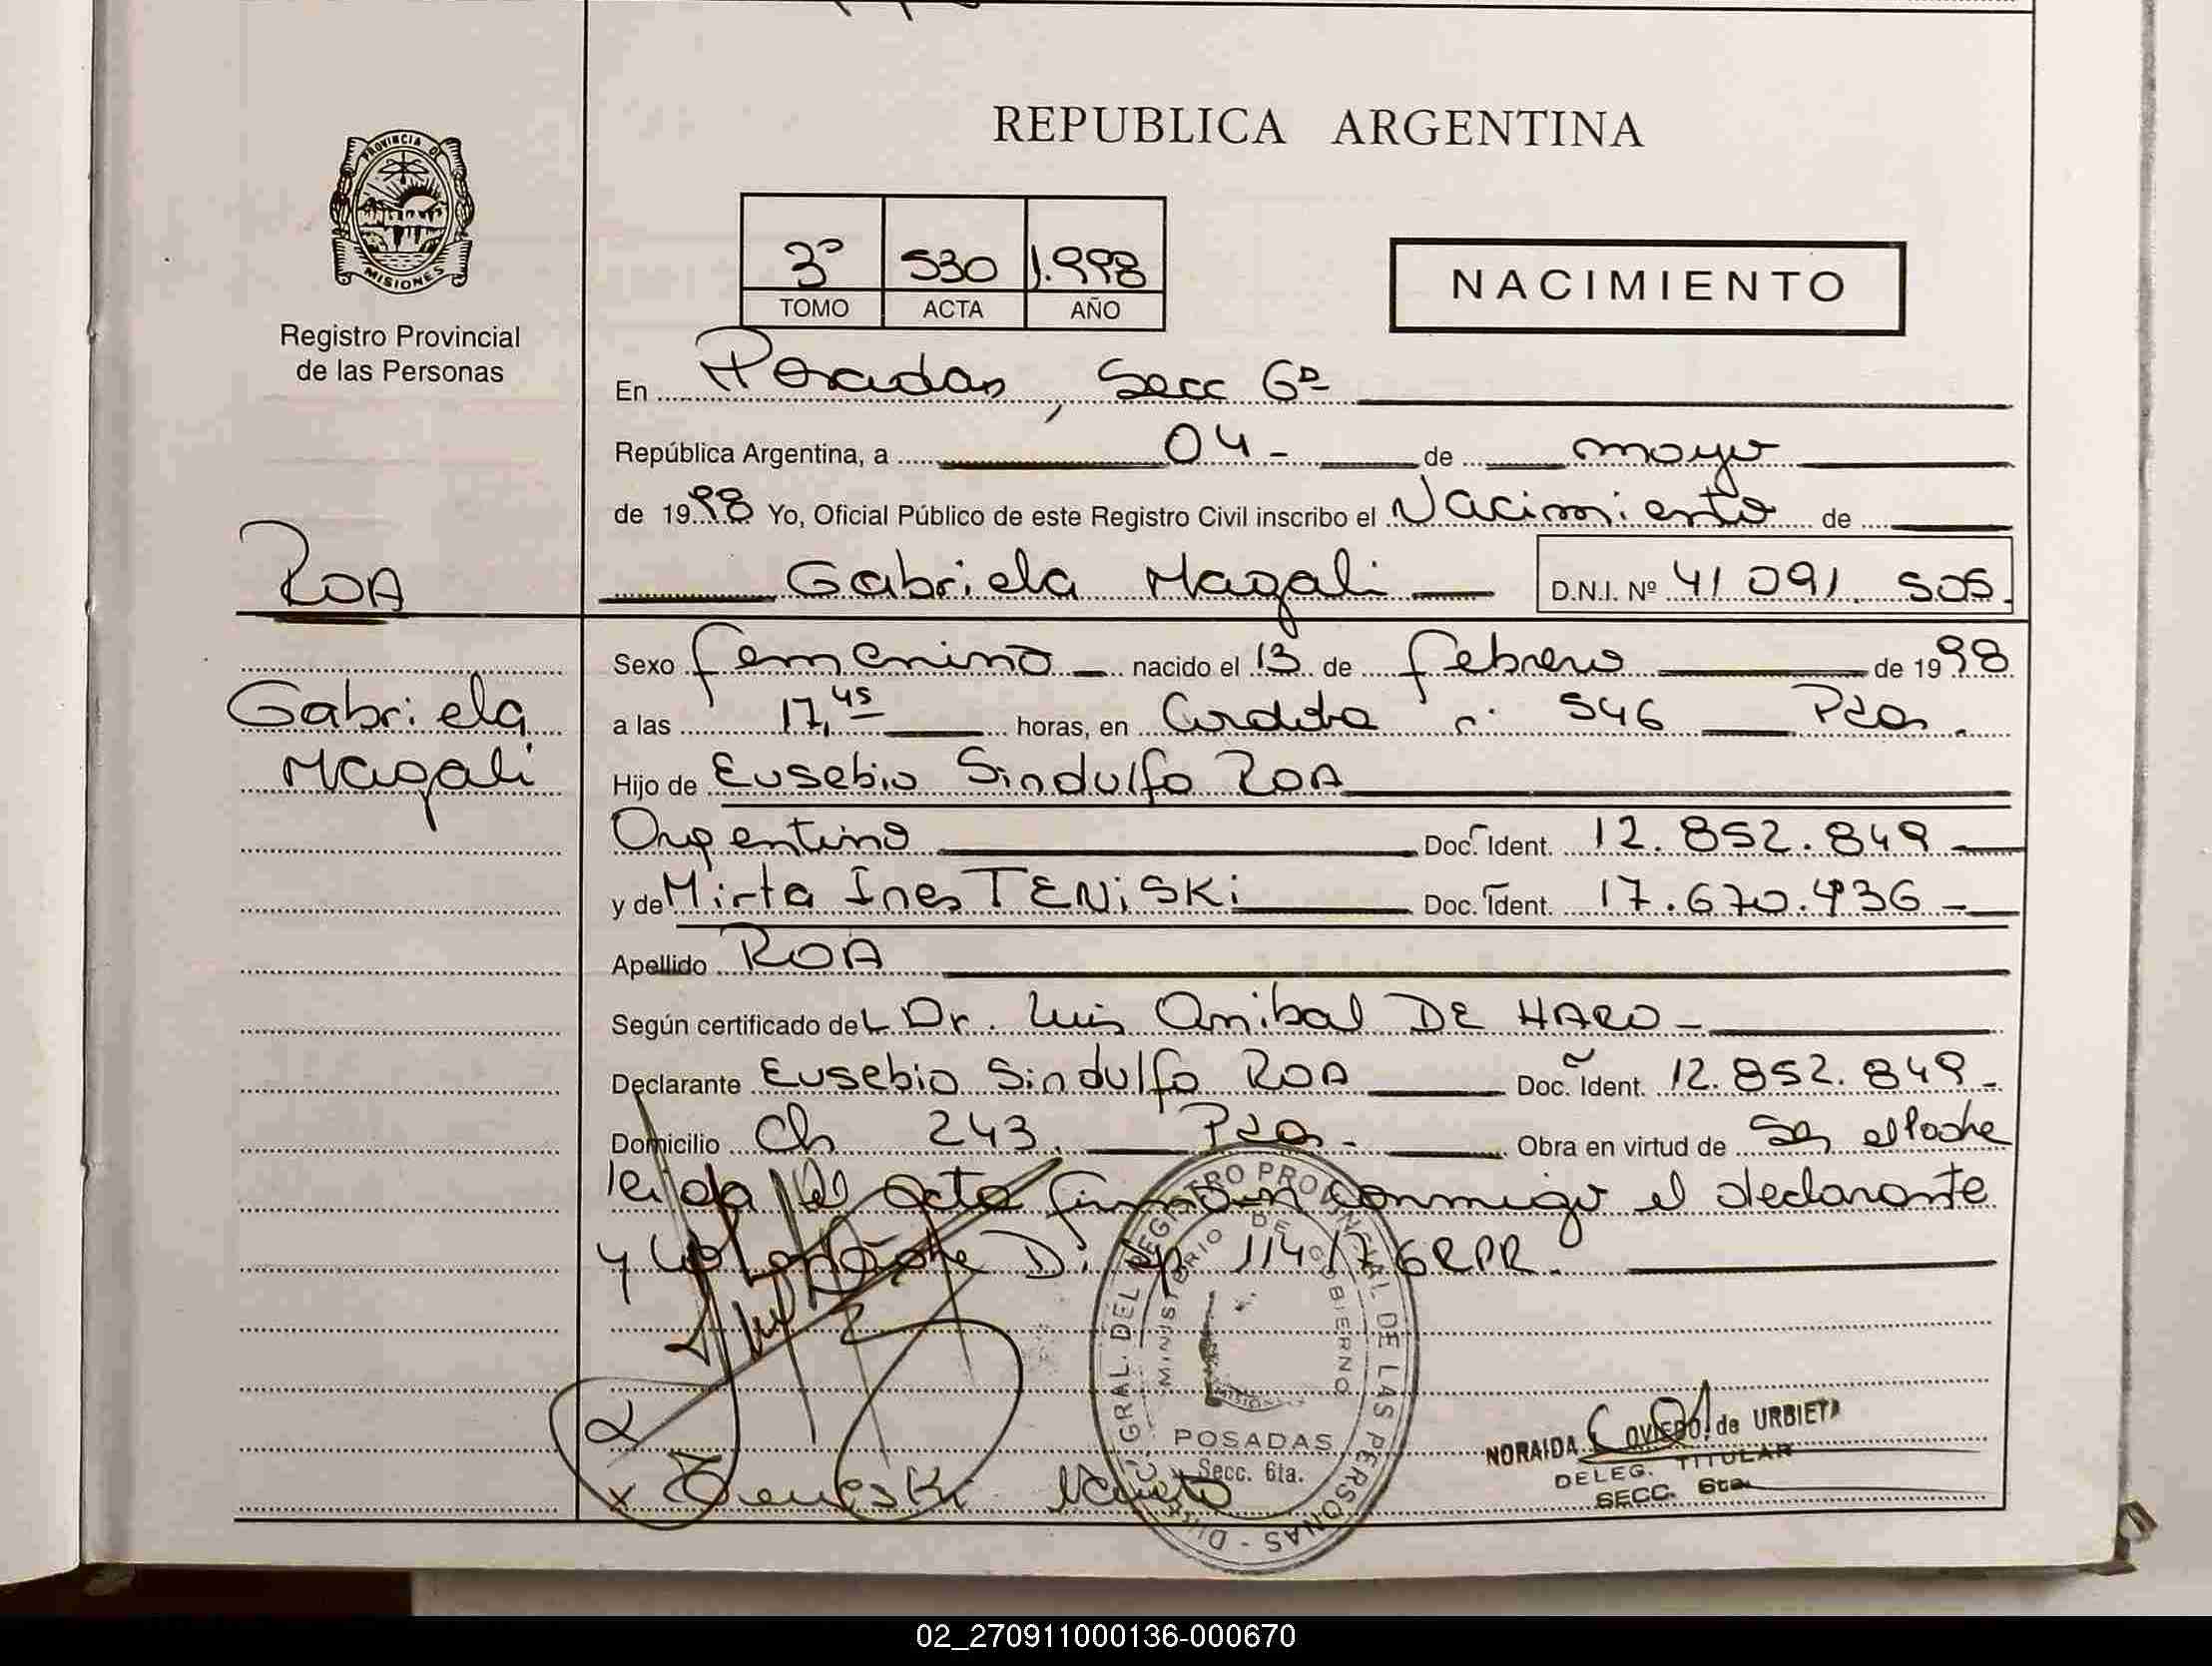 REPUBLICA ARGENTINA
PROVINCIA DE
MISIONES
Registro Provincial
de las Personas
3º 530 1.998
TOMO ACTA AÑO
NACIMIENTO
En Posadas, Secc 6ª
República Argentina, a 04 - de mayo
de 1998 Yo, Oficial Público de este Registro Civil inscribo el Nacimiento de
ROA
Gabriela Magali D.N.I. Nº 41 091. 505.
Sexo femenino nacido el 13 de febrero de 1998
Gabriela
Magali
a las 17,45 horas, en Cordoba nº 546 Pdas.
Hijo de Eusebio Sindulfo ROA
Argentino Doc. Ident. 12.852.849
y de Mirta Ines TENiSKi Doc. Ident. 17.670.436 -
Apellido ROA
Según certificado del Dr. Luis Anibal DE HARO -
Declarante Eusebio Sindulfo ROA Doc. Ident. 12.852.849 -
Domicilio Ch 243. Pdas. - Obra en virtud de Ser el Padre
leida el acta firman conmigo el declarante
y la Madre Disp 114/76 RPR.
DIR. GRAL. DEL REGISTRO PROVINCIAL DE LAS PERSONAS
MINISTERIO DE GOBIERNO
POSADAS
Secc. 6ta.
NORAIDA OVIEDO de URBIETA
DELEG. TITULAR
SECC. 6ta.
x Teneski
02_270911000136-000670